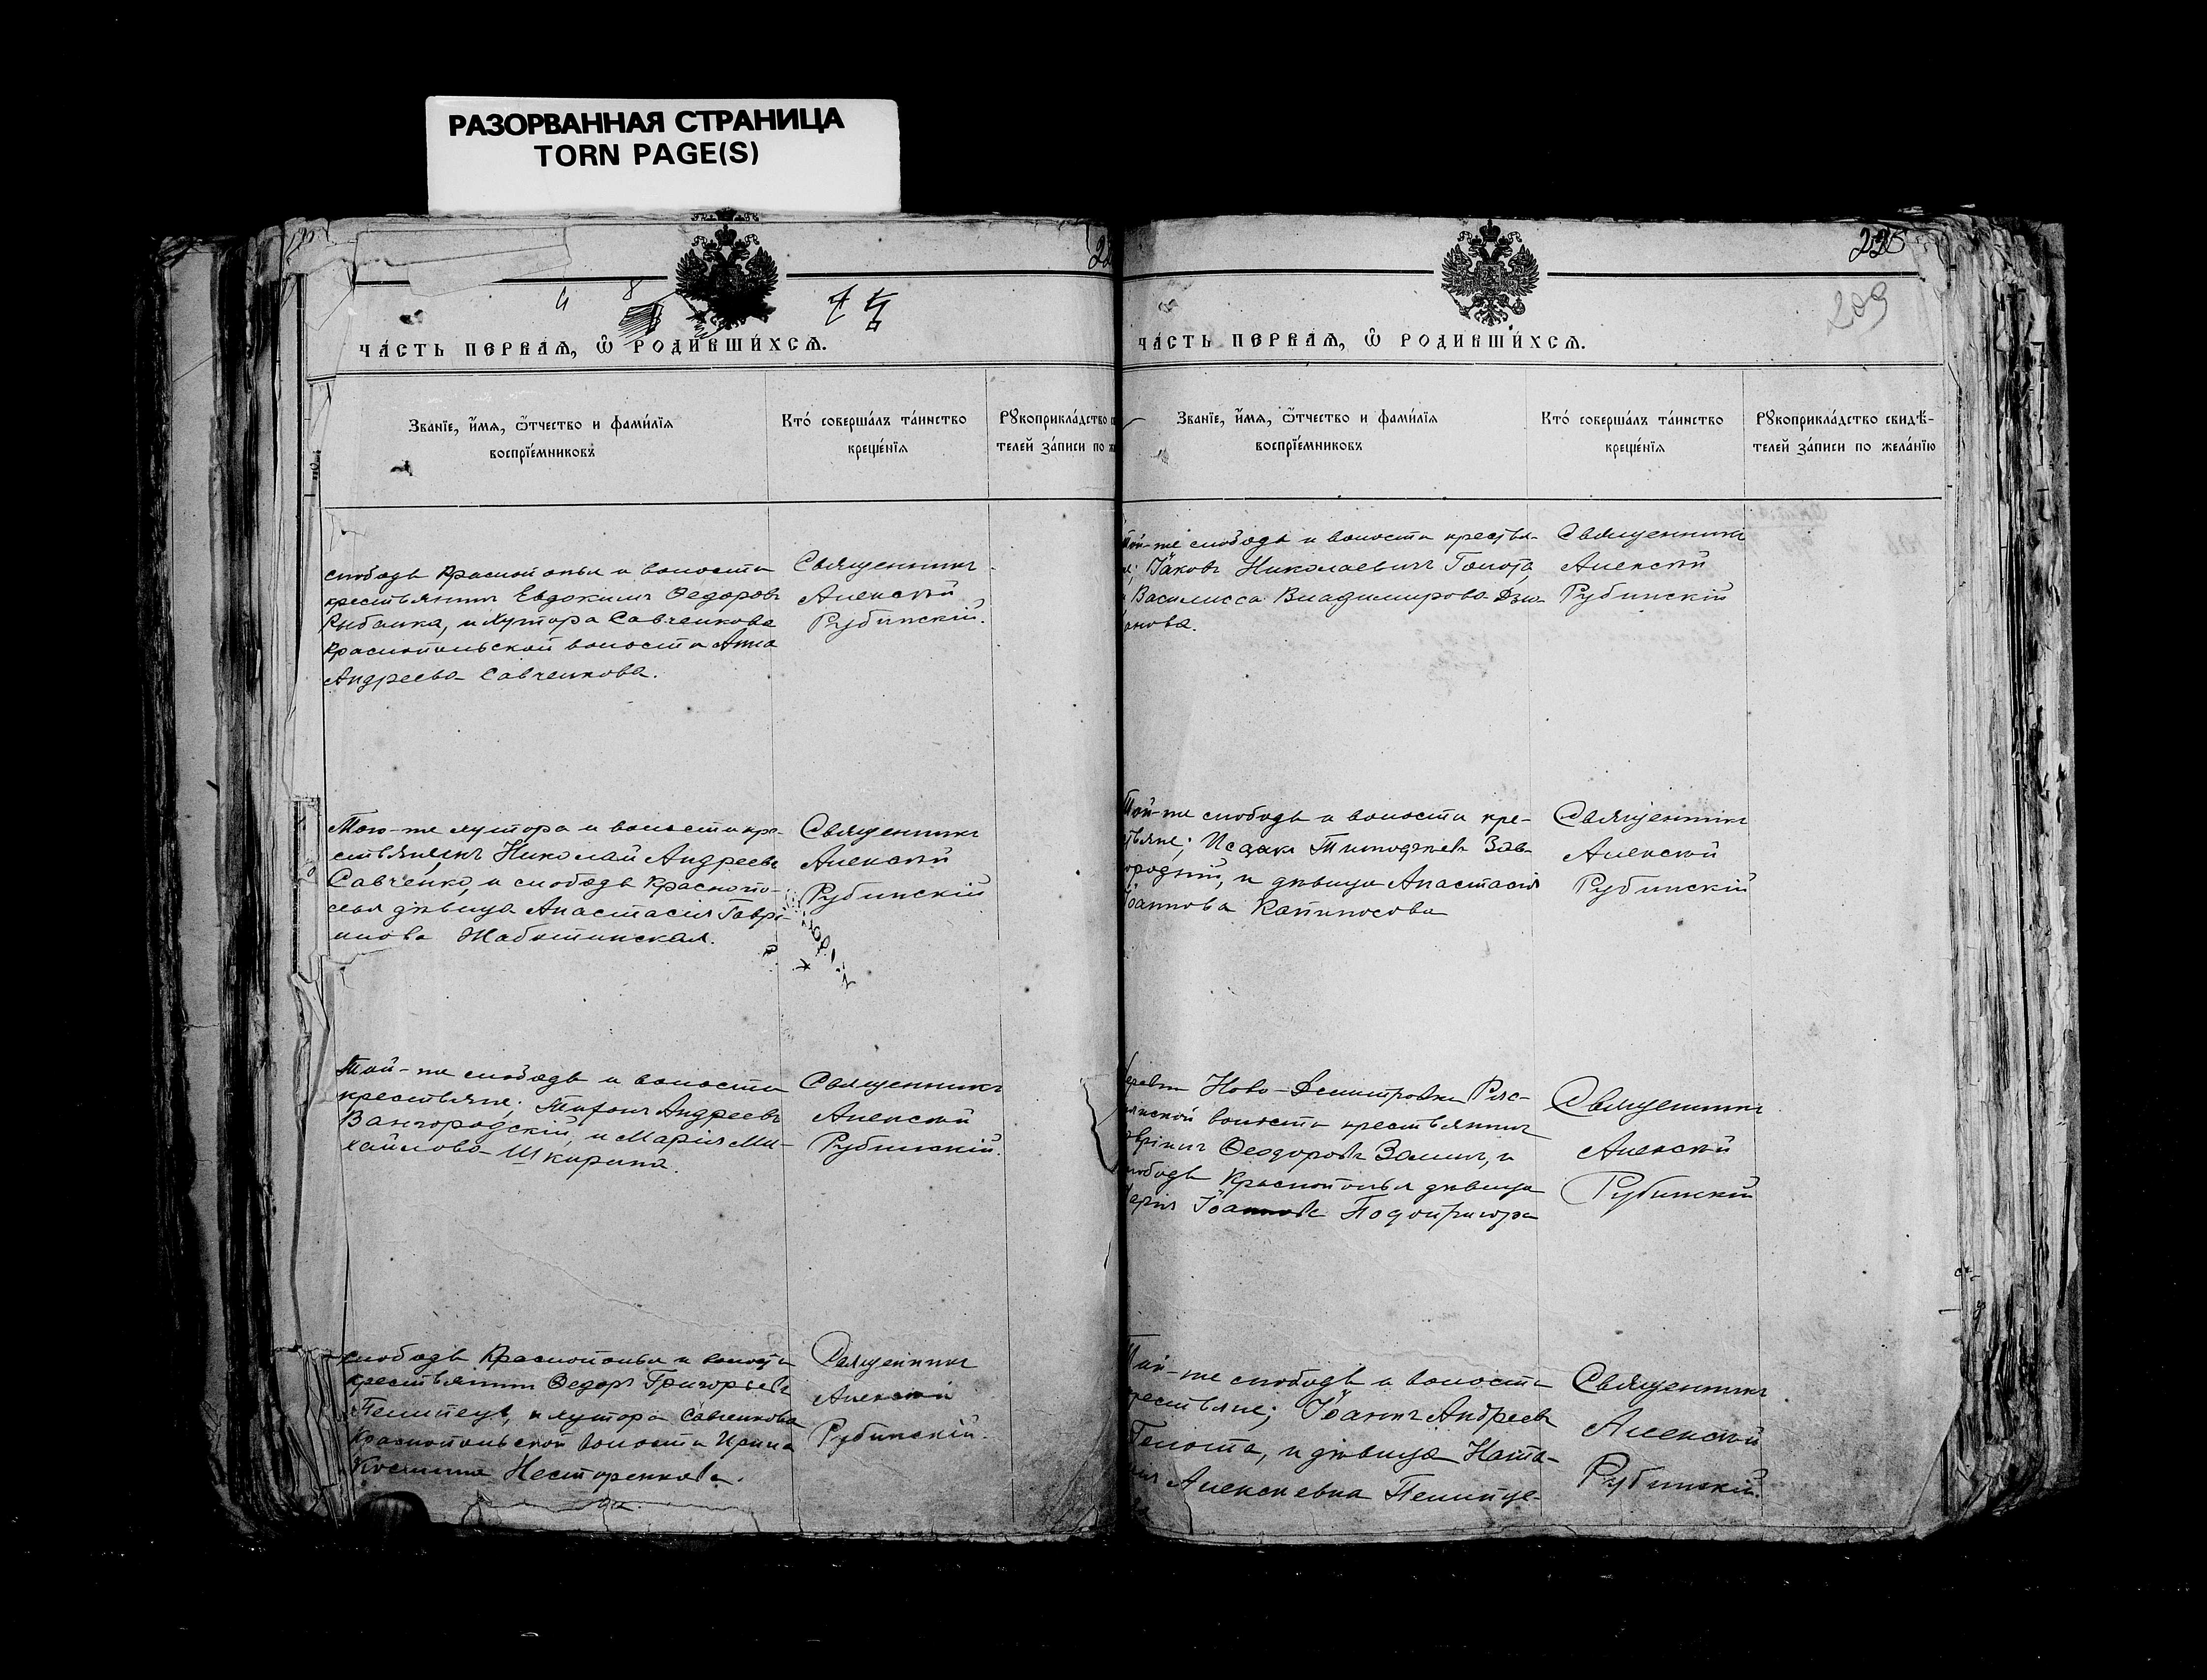 РАЗОРВАННАЯ СТРАНИЦА
TORN PAGE(S)
ЧА́СТЬ ПЕРВАѦ, Ѡ҃ РОДИ́ВШИ́ХСѦ.
Зва́нїе, и҆́мѧ, ѻ҆́тчество и фами́лїѧ
воспрїе́мниковъ
Кто́ соверша́лъ та́инство
креще́нїѧ
Рꙋкоприкла́дство
телей за́писи по
слободы Краснополья и волости
крестьянинъ Евдокимъ Ѳедоровъ
Рыбалка, и хутора Савченкова
Краснопольской волости Анна
Андреева Савченкова.
Священникъ
Алексѣй
Рубинскій.
Того-же хутора и волости кре-
стьянинъ Николай Андреевъ
Савченко, и слободы Краснопо-
лья дѣвица Анастасія Гаврі-
илова Жаботинская.
Священникъ
Алексѣй
Рубинскій
Той-же слободы и волости
крестьяне; Тихонъ Андреевъ
Вангородскій, и Марія Ми-
хайлова Шкирина.
Священникъ
Алексѣй
Рубинскій.
слободы Краснополья и волости
крестьянинъ Ѳедоръ Григорьевъ
Пелипецъ, и хутора Савченкова
Краснопольской волости Ирина
Космина Несторенкова.
Священникъ
Алексѣй
Рубинскій.
225
209
ЧА́СТЬ ПЕРВАѦ, Ѡ҃ РОДИВШИ́ХСѦ.
Зва́нїе, и҆́мѧ, ѻ҆́тчество и фами́лїѧ
воспрїе́мниковъ
Кто́ соверша́лъ та́инство
креще́нїѧ
Рꙋкоприкла́дство свидѣ́-
телей за́писи по жела́нїю
Той-же слободы и волости крестья-
Іаковъ Николаевичъ Голота,
Василисса Владимирова Дзю-
Священникъ
Алексѣй
Рубинскій
Той-же слободы и волости кре-
стьяне; Исаакъ Тимоѳеевъ Зав-
городній, и дѣвица Анастасія
Іоаннова Капиносова
Священникъ
Алексѣй
Рубинскій
Ново-Дмитровки Ряс-
нянской волости крестьянинъ
Ѳеодоровъ Золинъ, и
слободы Краснополья дѣвица
Марія Іоаннова Подопригора
Священникъ
Алексѣй
Рубинскій
Той-же слободы и волости
крестьяне; Іоаннъ Андреевъ
Голота, и дѣвица Ната-
Алексѣевна Пелипце-
Священникъ
Алексѣй
Рубинскій.